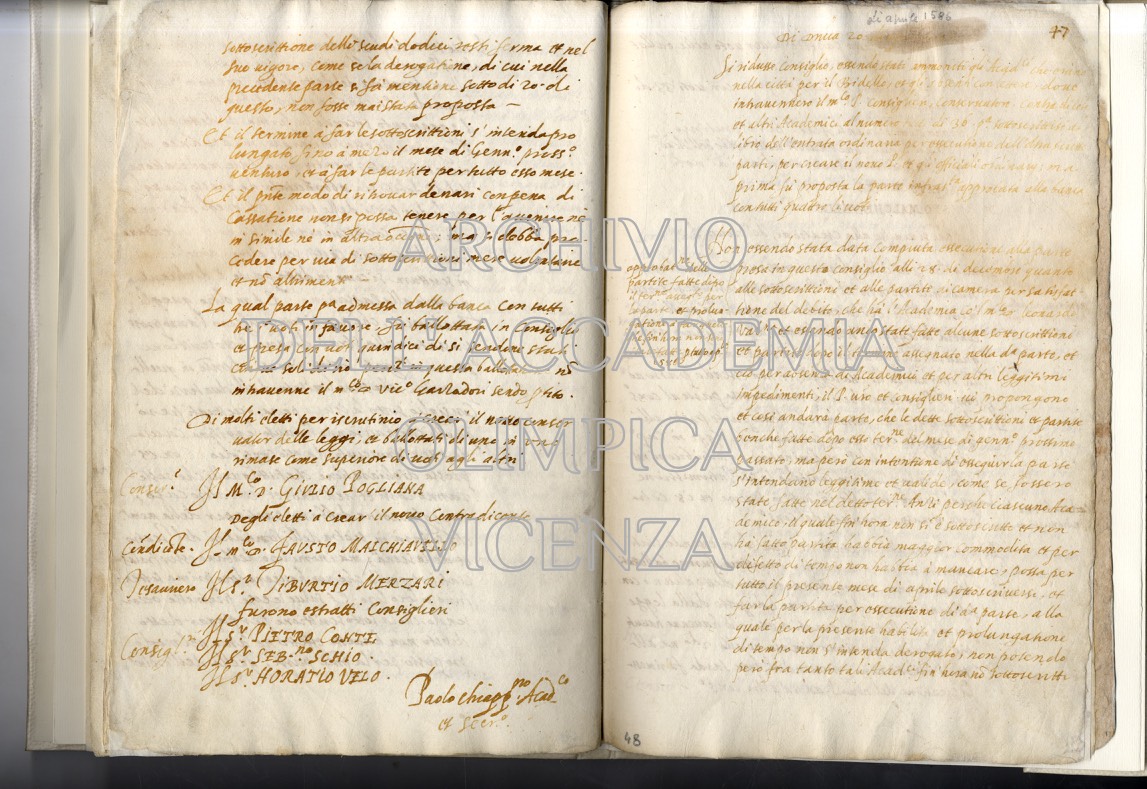 sottoscrittione delli scudi dodici resti ferma et nel
suo vigore, come se la derogatione, di cui nella
precedente parte si fa mentione sotto di 20 di
questo, non fosse mai stata proposta —
Et il termine à far le sottoscrittioni s'intenda pro
lungato, fino à mezo il mese di Genn.º pross.º
venturo, et à far le partite per tutto esso mese.
Et il pnte modo di trovar denari con pena di
Cassatione non si possa tenere per l'avenire nè
in simile nè in altra occ.ne; ma si debba pro
cedere per via di sottoscrittioni mere volontarie
et nõ altrimente
La qual parte pª admessa dalla banca con tutti
tre i voti in favore. fu ballottata in Consiglio
et presa con voti quindici di sì
intravenne il m.co vic.º Garzadori
Di molti eletti per iscrutinio il novo censor
delle leggi, et ballottati di uno in uno
rimase come superiore di suffragi agli altri
Conser.r Il M.co D. GIULIO POGLIANA
Degli eletti à crear il novo Contradicente
Cõtradicẽte. Il m.co D. FAUSTO MACHIAVELLO
Tesauriero Il S.r TIBURTIO MERZARI
furono estratti Consiglieri
Consigl.ri Il S.r PIETRO CONTE
Il S.r SEB.no SCHIO.
Il S.r HORATIO VELO.
Paolo Chiapp.no Acad.co
et Secr.º
di aprile 1586
47
Di Domenica 20
Si ridusse Consiglio, essendo stati ammoniti gli Acad.ci
nella città per il Bidello,
intravennero il m.co P. Consiglieri, Conservatori, Contradicente
et altri Academici al numero di 30.
libro dell'entrata ordinaria per essecutione dell'
parti, per creare il novo P. et gli officiali ordinarii, ma
prima fu proposta la parte infras.ta approvata alla banca
con tutti quattro i voti
Non essendo stata data compiuta essecutione alla parte
presa in questo consiglio alli 28. di decembre quanto
alle sottoscrittioni et alle partite di camera per la satisfat
tione del debito, che hà l'Academia co'l m.co Leonardo
Val.na et essendo anco state fatte alcune sottoscrittioni
et partite dopo il termine assegnato nella d.ª parte, et
ciò per absenza di Academici et per altri legitimi
impedimenti, il P. vro et consiglieri vi propongono
et così andarà parte, che le dette sottoscrittioni et partite
bonche fatte dopo esso ter.ne del mese di genn.º prossimo
passato, ma però con intentione di esseguir la parte
s'intendano legitime et valide, come se fossero
state fatte nel detto ter.ne Anzi perche ciascuno Aca
demico, il quale fin'hora non si è sottoscritto et non
hà fatto partita habbia maggior commodità et per
difetto di tempo non habbia à mancare, possa per
tutto il presente mese di aprile sottoscriversi, et
far la partita per essecutione di d.ª parte, alla
quale per la presente habilità et prolungatione
di tempo non s'intenda derogato, non potendo
però fra tanto tali Acad.ci fin'hora nõ sottoscritti
approbat.ne delle
partite fatte dopo
il ter.ne
la parte, et prolun
gatione
48
ARCHIVIO
DELL'ACCADEMIA
OLIMPICA
VICENZA